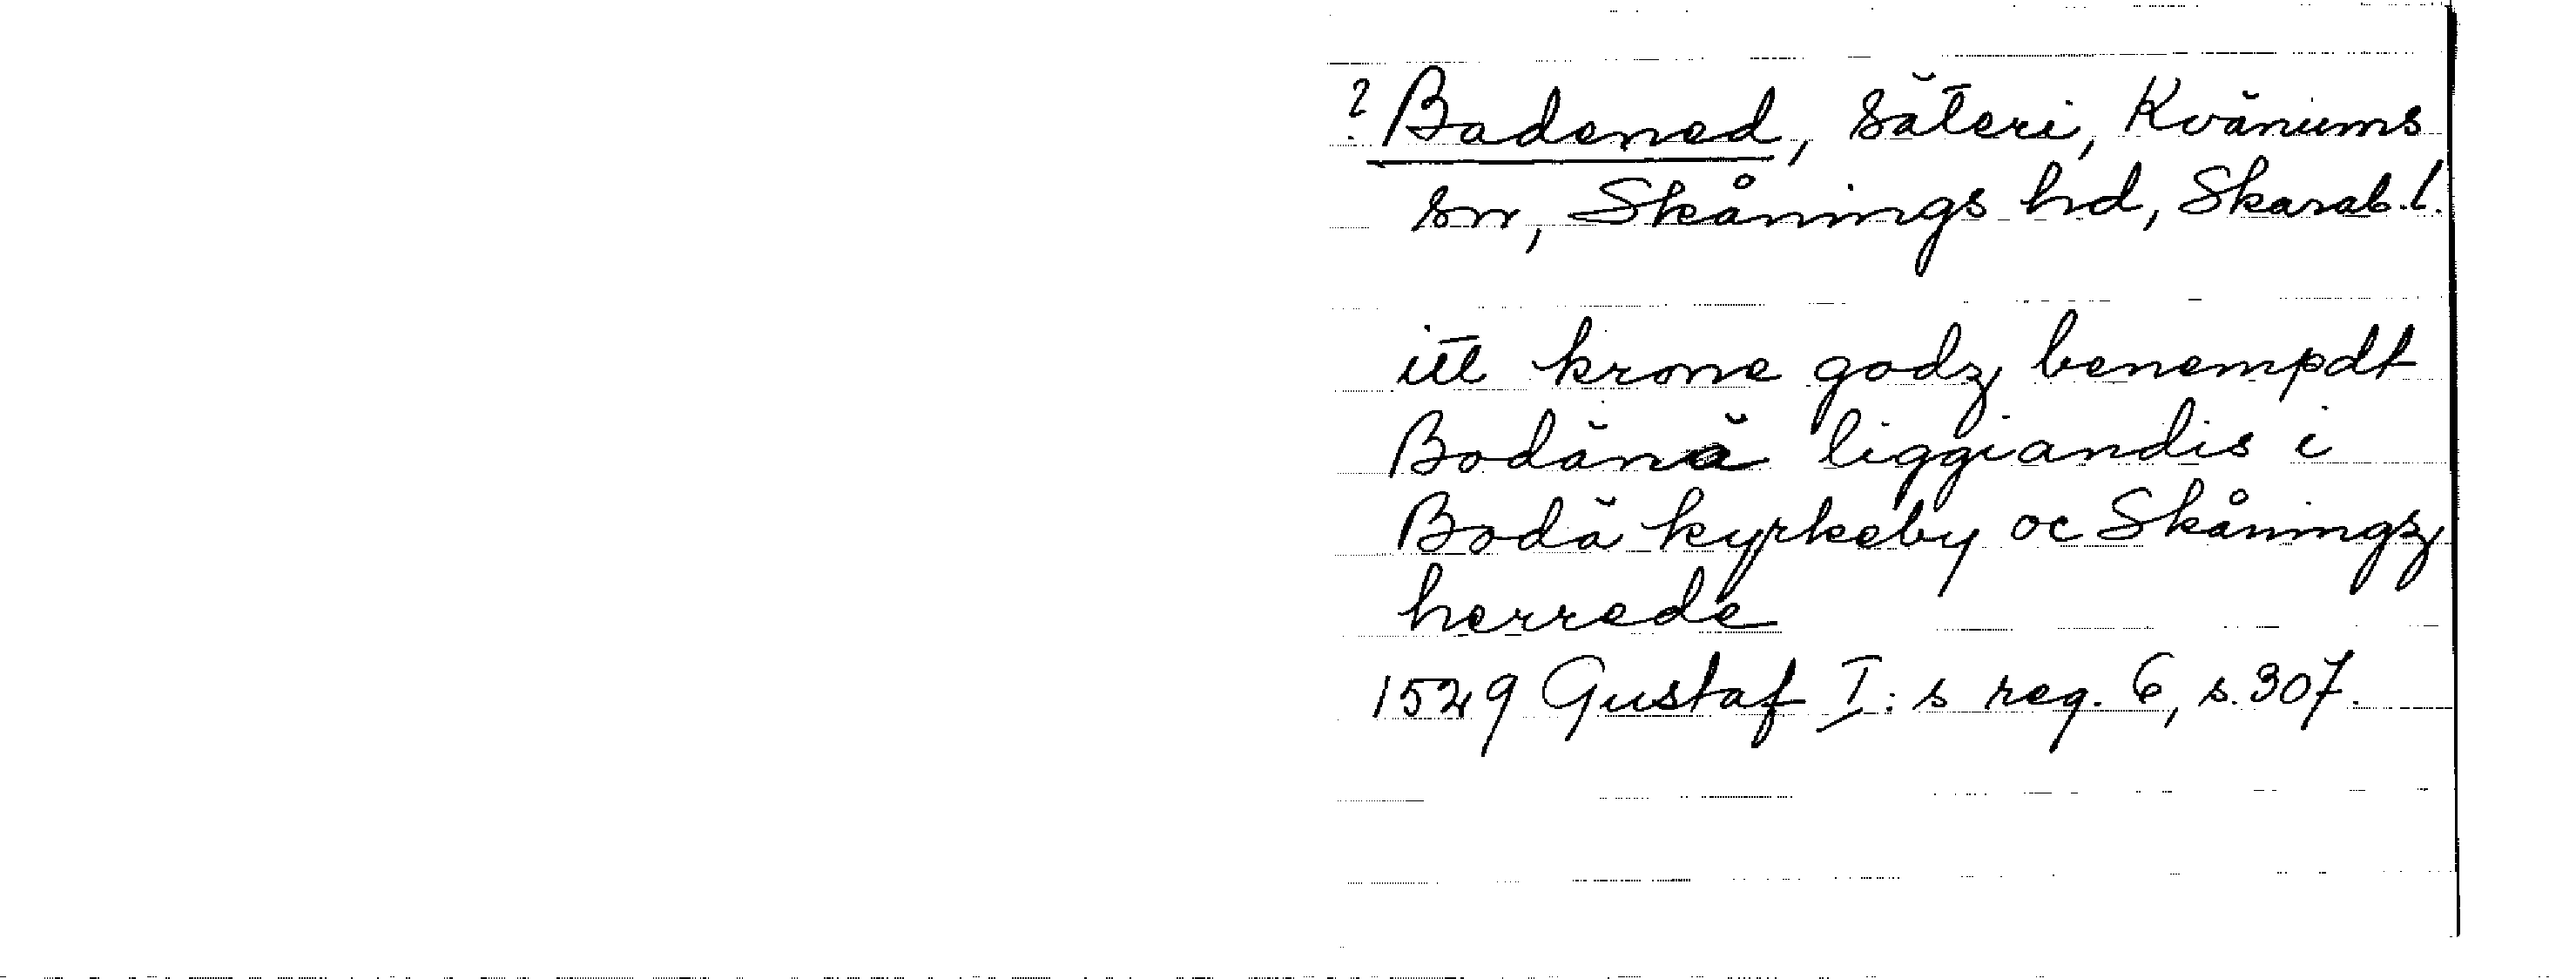 ? Badened, säteri, Kvänums
sn, Skånings hd, Skarab.l.
itt krone godz benempdt
Bodänä liggiandis i
Bodä kyrkeby oc Skåningz
herrede
1529 Gustaf I:s reg. 6, s. 307.